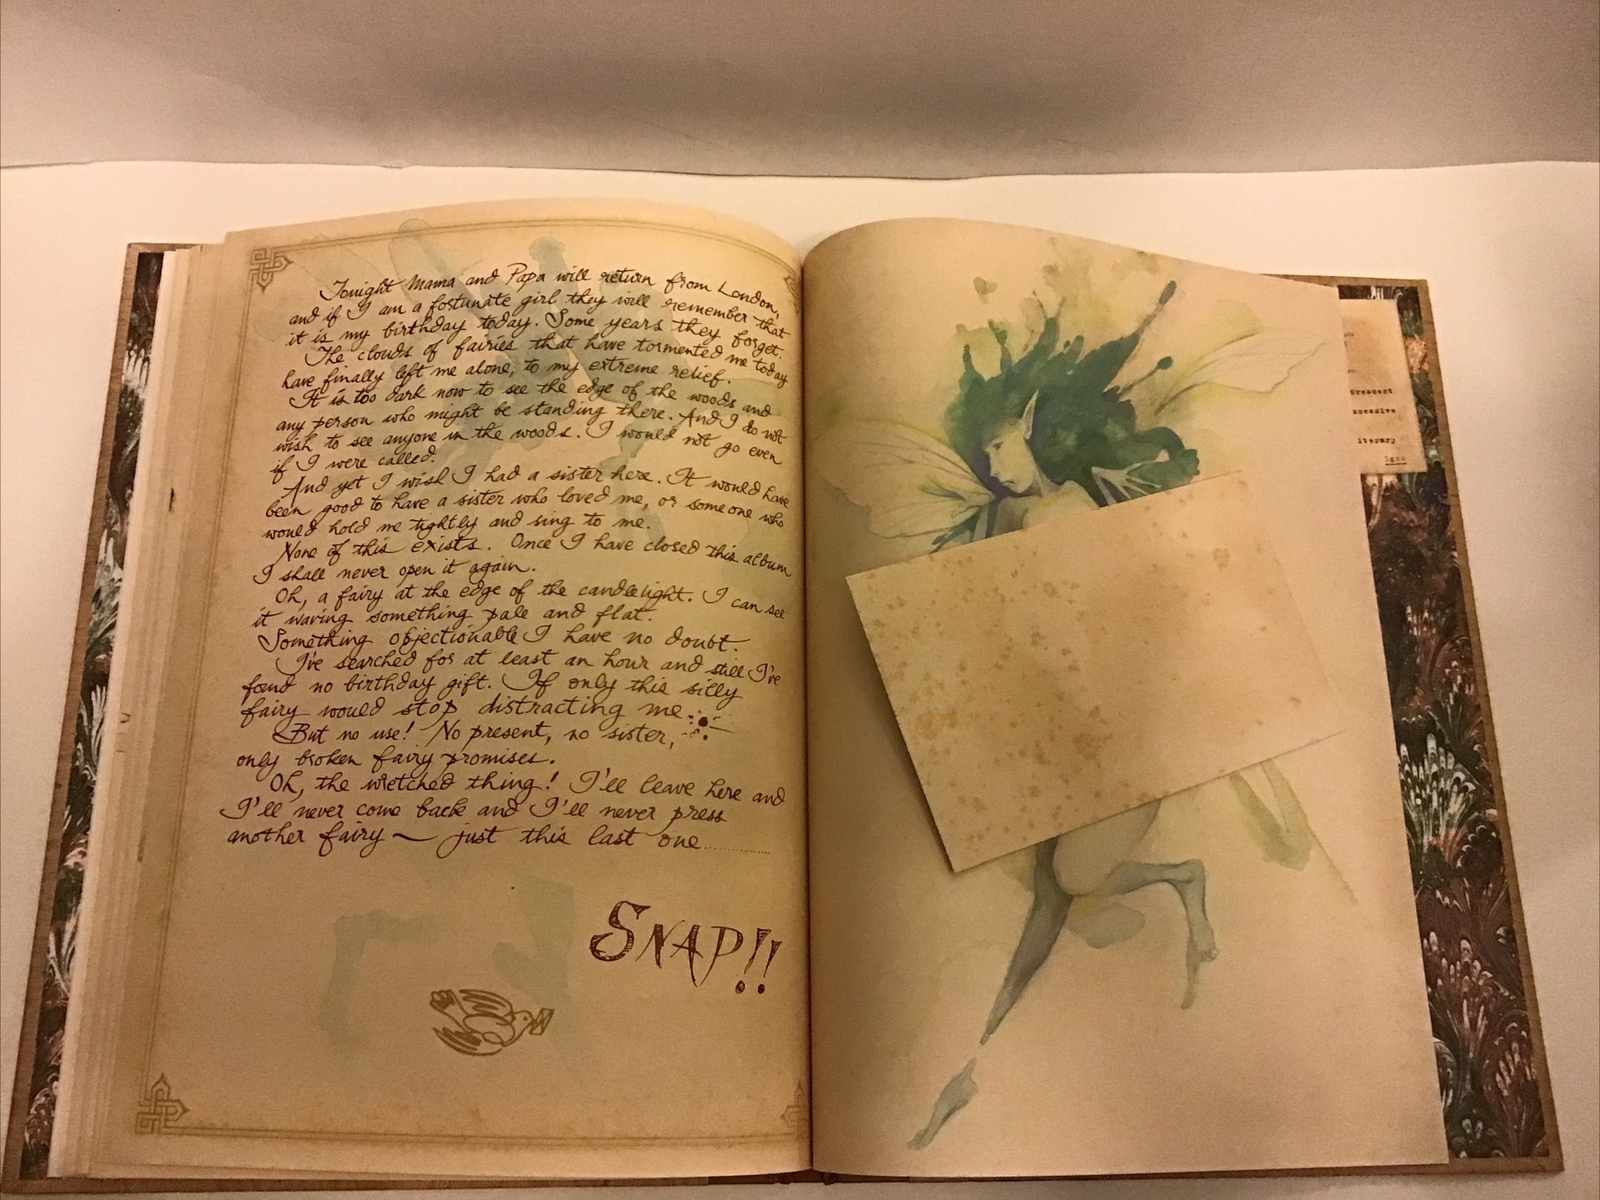 Tonight Mama and Papa will return from London,
and if I am a fortunate girl they will remember that
it is my birthday today. Some years they forget.
The clouds of fairies that have tormented me today
have finally left me alone, to my extreme relief.
It is too dark now to see the edge of the woods and
any person who might be standing there. And I do not
wish to see anyone in the woods. I would not go even
if I were called.
And yet I wish I had a sister here. It would have
been good to have a sister who loved me, or someone who
would hold me tightly and sing to me.
None of this exists. Once I have closed this album
I shall never open it again.
Oh, a fairy at the edge of the candlelight. I can see
it waving something pale and flat.
Something objectionable I have no doubt.
I've searched for at least an hour and still I've
found no birthday gift. If only this silly
fairy would stop distracting me.
But no use! No present, no sister,
only broken fairy promises.
Oh, the wretched thing! I'll leave here and
I'll never come back and I'll never press
another fairy — just this last one..............
SNAP!!